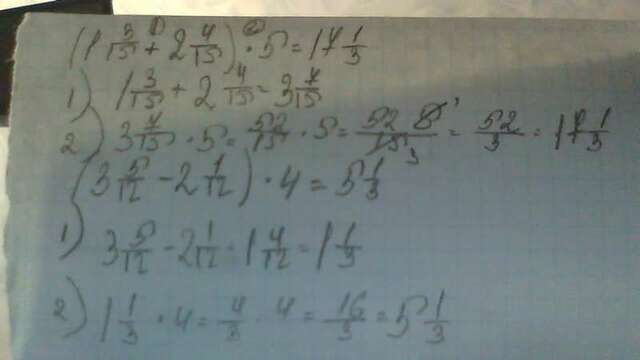 (1 3/15 + 2 4/15) · 5 = 17 1/3
1) 1 3/15 + 2 4/15 = 3 7/15
2) 3 7/15 · 5 = 52/15 · 5 = 52 5/15 = 52/3 = 17 1/3
(3 5/12 - 2 1/12) · 4 = 5 1/3
1) 3 5/12 - 2 1/12 = 1 4/12 = 1 1/3
2) 1 1/3 · 4 = 4/3 · 4 = 16/3 = 5 1/3